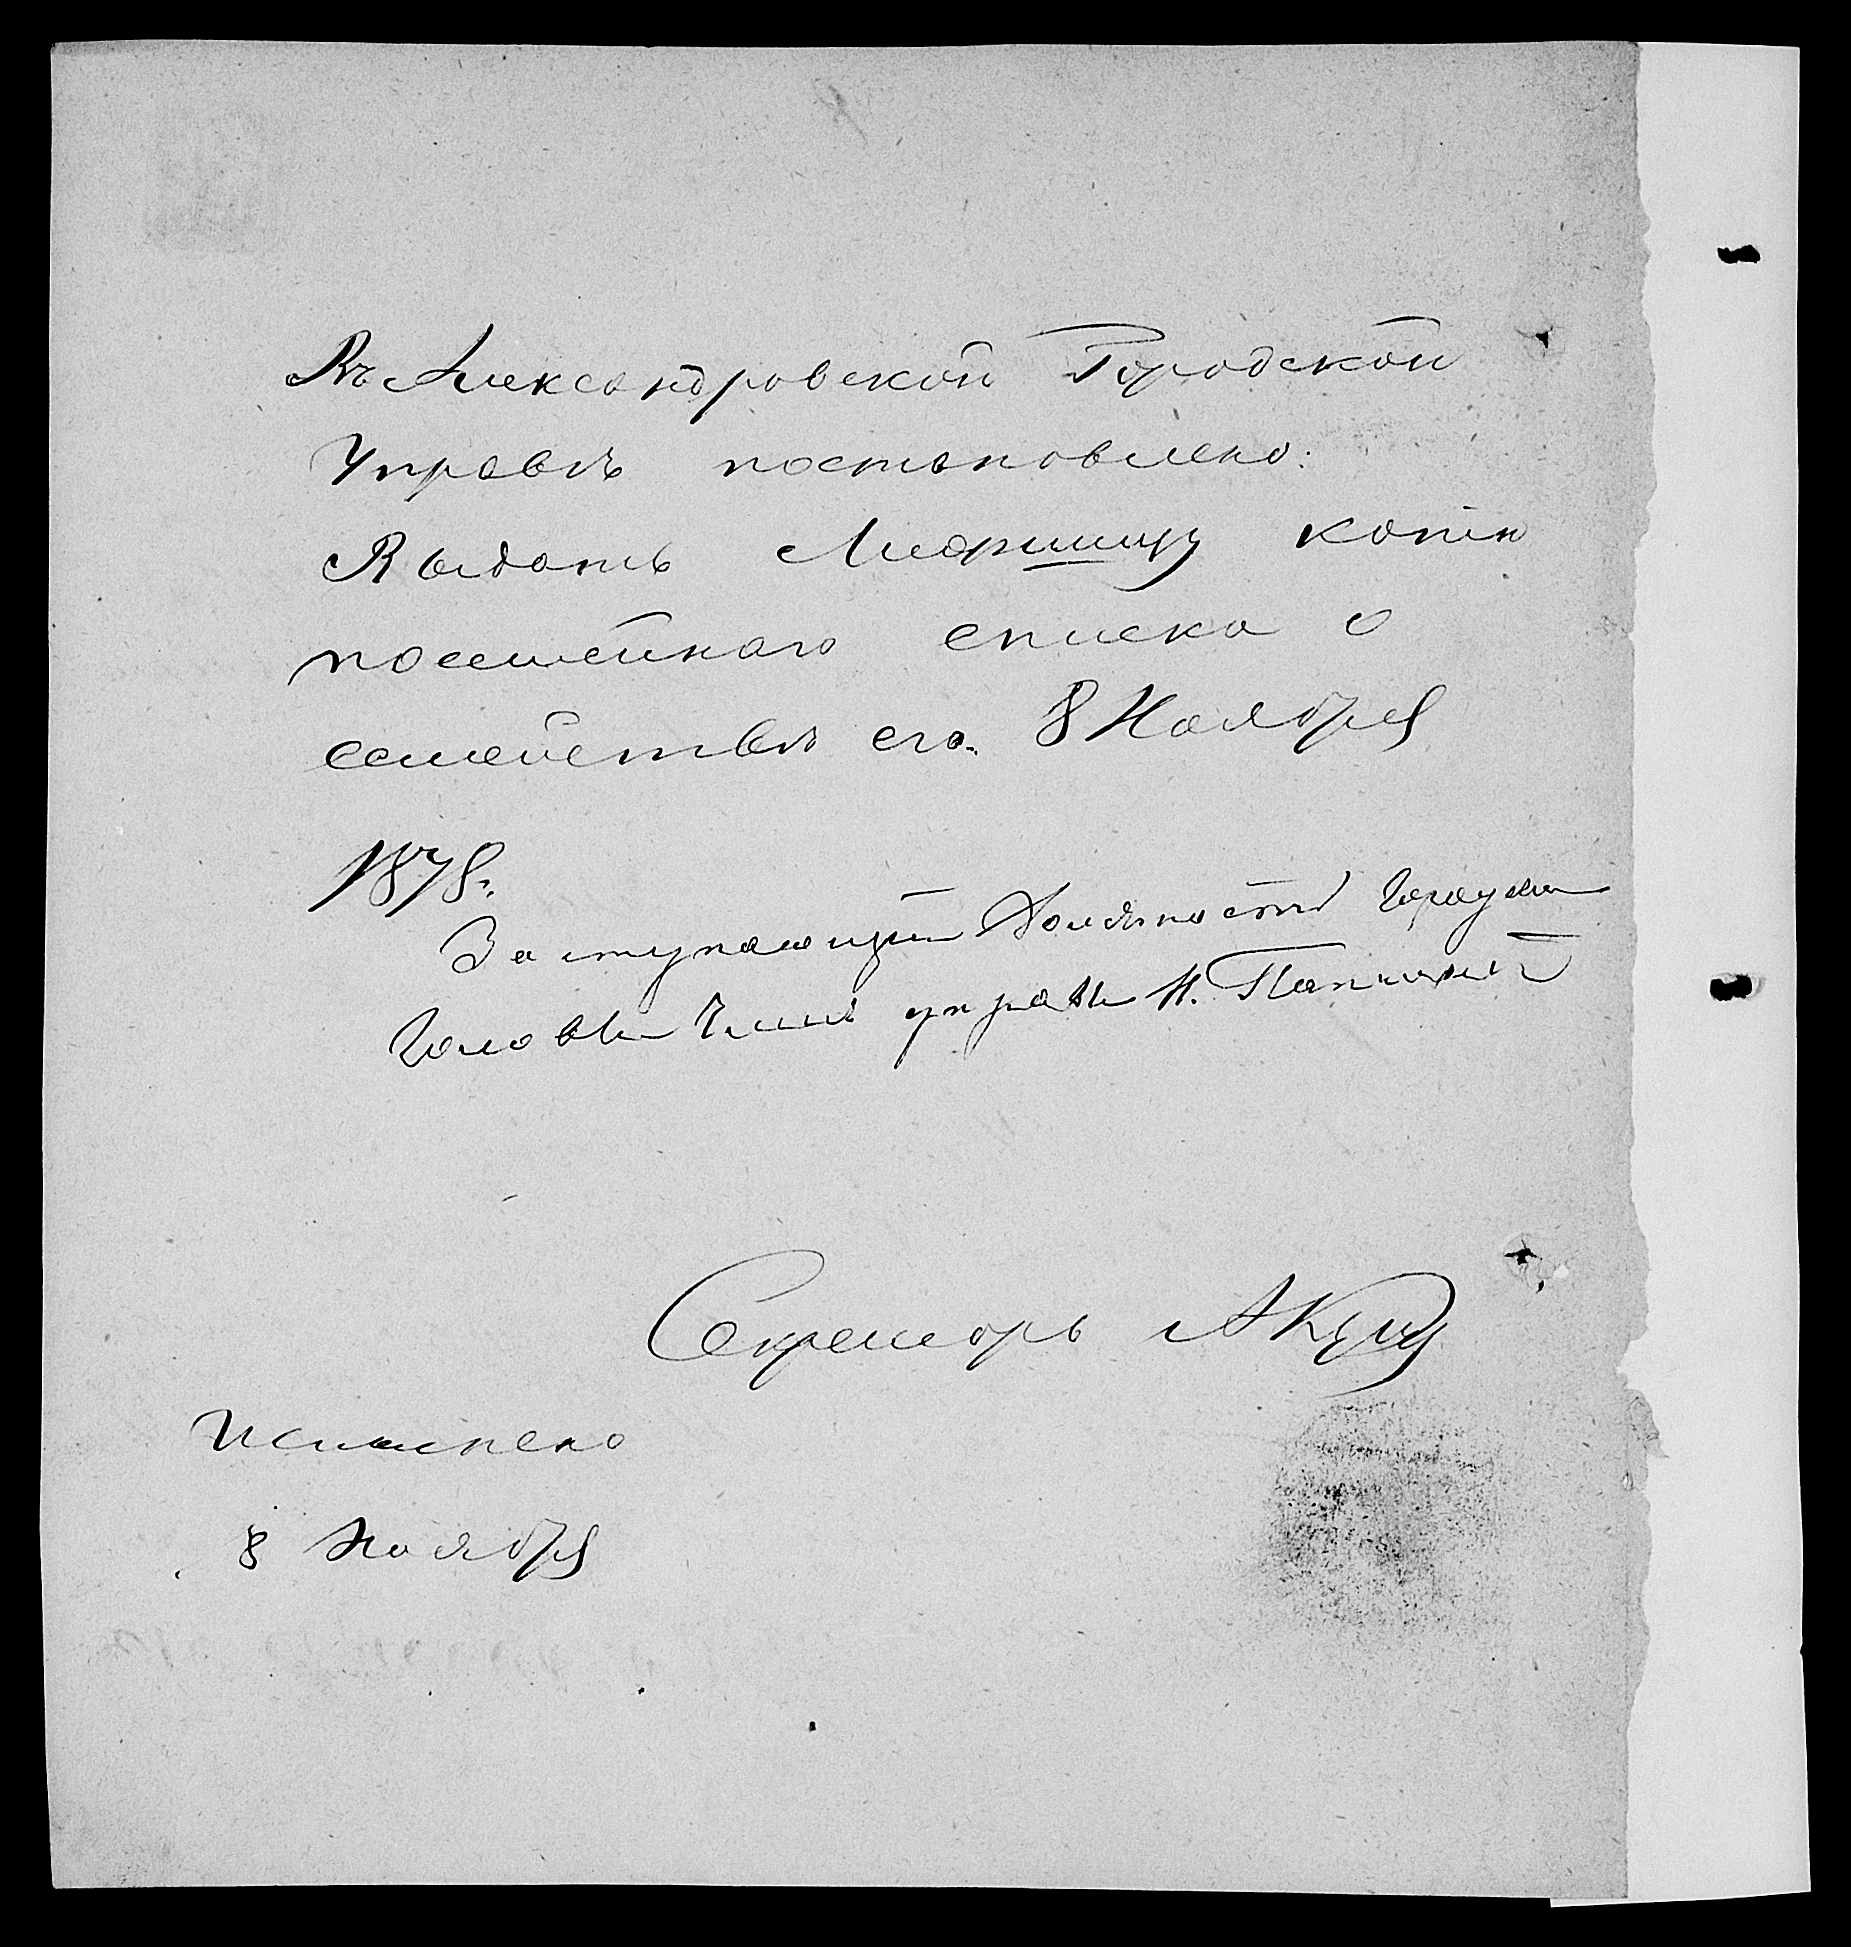 Въ Александровской Городской
Управѣ постановлено:
Выдать копію
посемейнаго списка о
семействѣ его. 8 Ноября
1878г.
Заступающій Должность Городскаго
Головы Членъ управы Н.
Секретарь А
Исполнено
8 Ноября